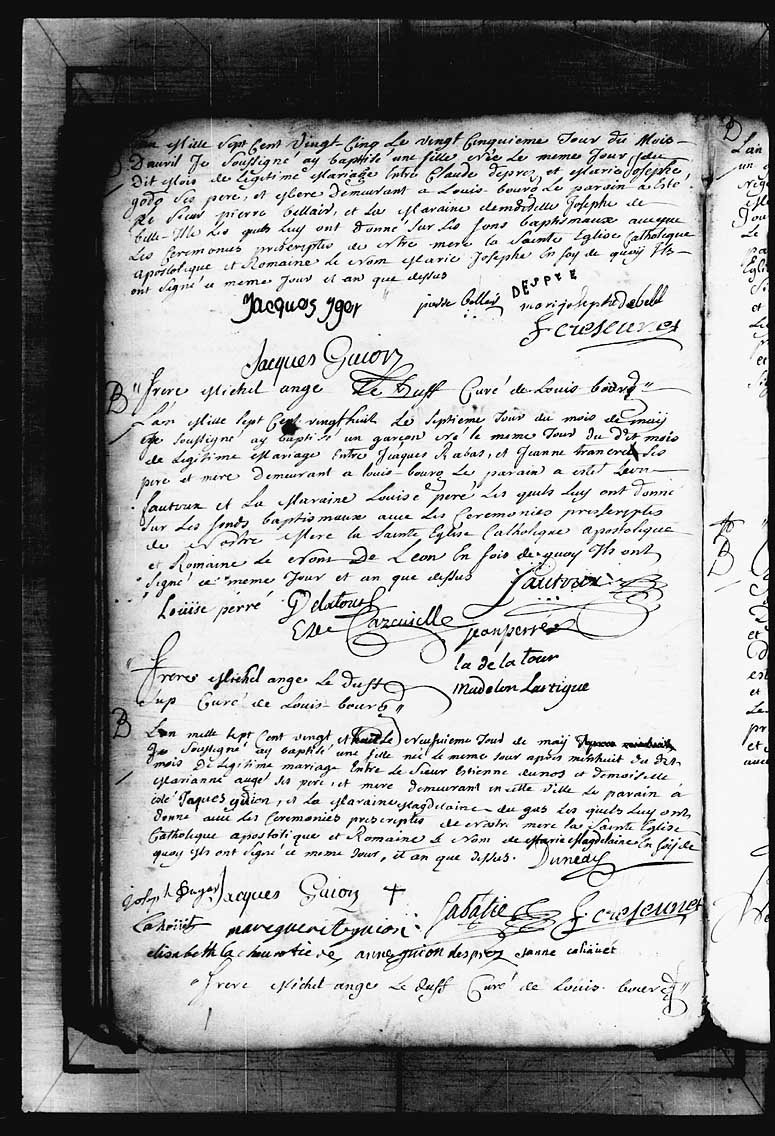 Lan Mille Sept Cent Vingt-Cinq Le Vingt Cinquieme Jour du Mois
Dauril Je Soussigné ay baptisé une fille née Le meme Jour du
Dit Mois de Legitime Mariage Entre Claude depres, et Marie Josephe
godo Ses pere, et Mere Demeurant a Louis-bourg Le parain a Esté
Le Sieur pierre bellair, et La Maraine demoiselle Josephe de
belle-Ile Les quels Luy ont donné Sur Les fons baptismaux auecque
Les Ceremonies prescriptes de nôtre mere la Sainte Eglise Catholique
apostolique et Romaine Le Nom Marie Josephe En foy de quoy Ils
ont Signé ce meme Jour et an que dessus
Jacques yger pierre bellair DESPRE
marijosephedebell
F creseunet
Jacques Guion
B
Frere Michel ange Le Duff Curé de Louis bourg
Lan Mille Sept Cent vingt huit Le Septieme Jour du mois de maÿ
Je Soussigné aÿ baptisé un garçon né le meme Jour du dit mois
de Legitime Mariage Entre Jacques Rabas, et Jeanne francois Ses
pere et mere demeurant a louis-bourg Le parain a estét Leon
fautoux et La Maraine Louise peré Les quels Luy ont donné
Sur Les fonds baptismaux auec Les Ceremonies prescriptes
de Nostre Mere la Sainte Eglise Catholique apostolique
et Romaine Le Nom De Leon En fois de quoy Ils ont
Signé ce meme Jour et an que dessus fautoux
Loüise pérré Delatour
Cazenielle jean perré
la de la tour
Frere Michel ange Le duff madelon Lartigue
Curé de Louis-bourg
B
Lan mille Sept Cent vingt et huit Le neufuieme Jour de maÿ
Je Soussigné aÿ baptisé une fille neé Le meme Jour apres minhuit du dit
mois De Legitime mariage Entre Le Sieur Estienne dunos et demoiselle
Marianne augé Ses pere, et mere demeurant en cette Ville Le parain à
esté Jaques guion, et La Maraine Magdelaine du gas Les quels Luy ont
donné auec Les Ceremonies prescriptes de Nostre mere la Sainte Eglise
Catholique apostolique et Romaine Le Nom de Marie Magdelaine En foij de
quoy Ils ont Signé ce meme Jour, et an que dessus.
joseph Dugas Jacques Guion + Sabatie F creseunet
margueritte guion
elisabeth la anne guion desprez
Frere Michel ange Le duff Curé de Loüis-bourg